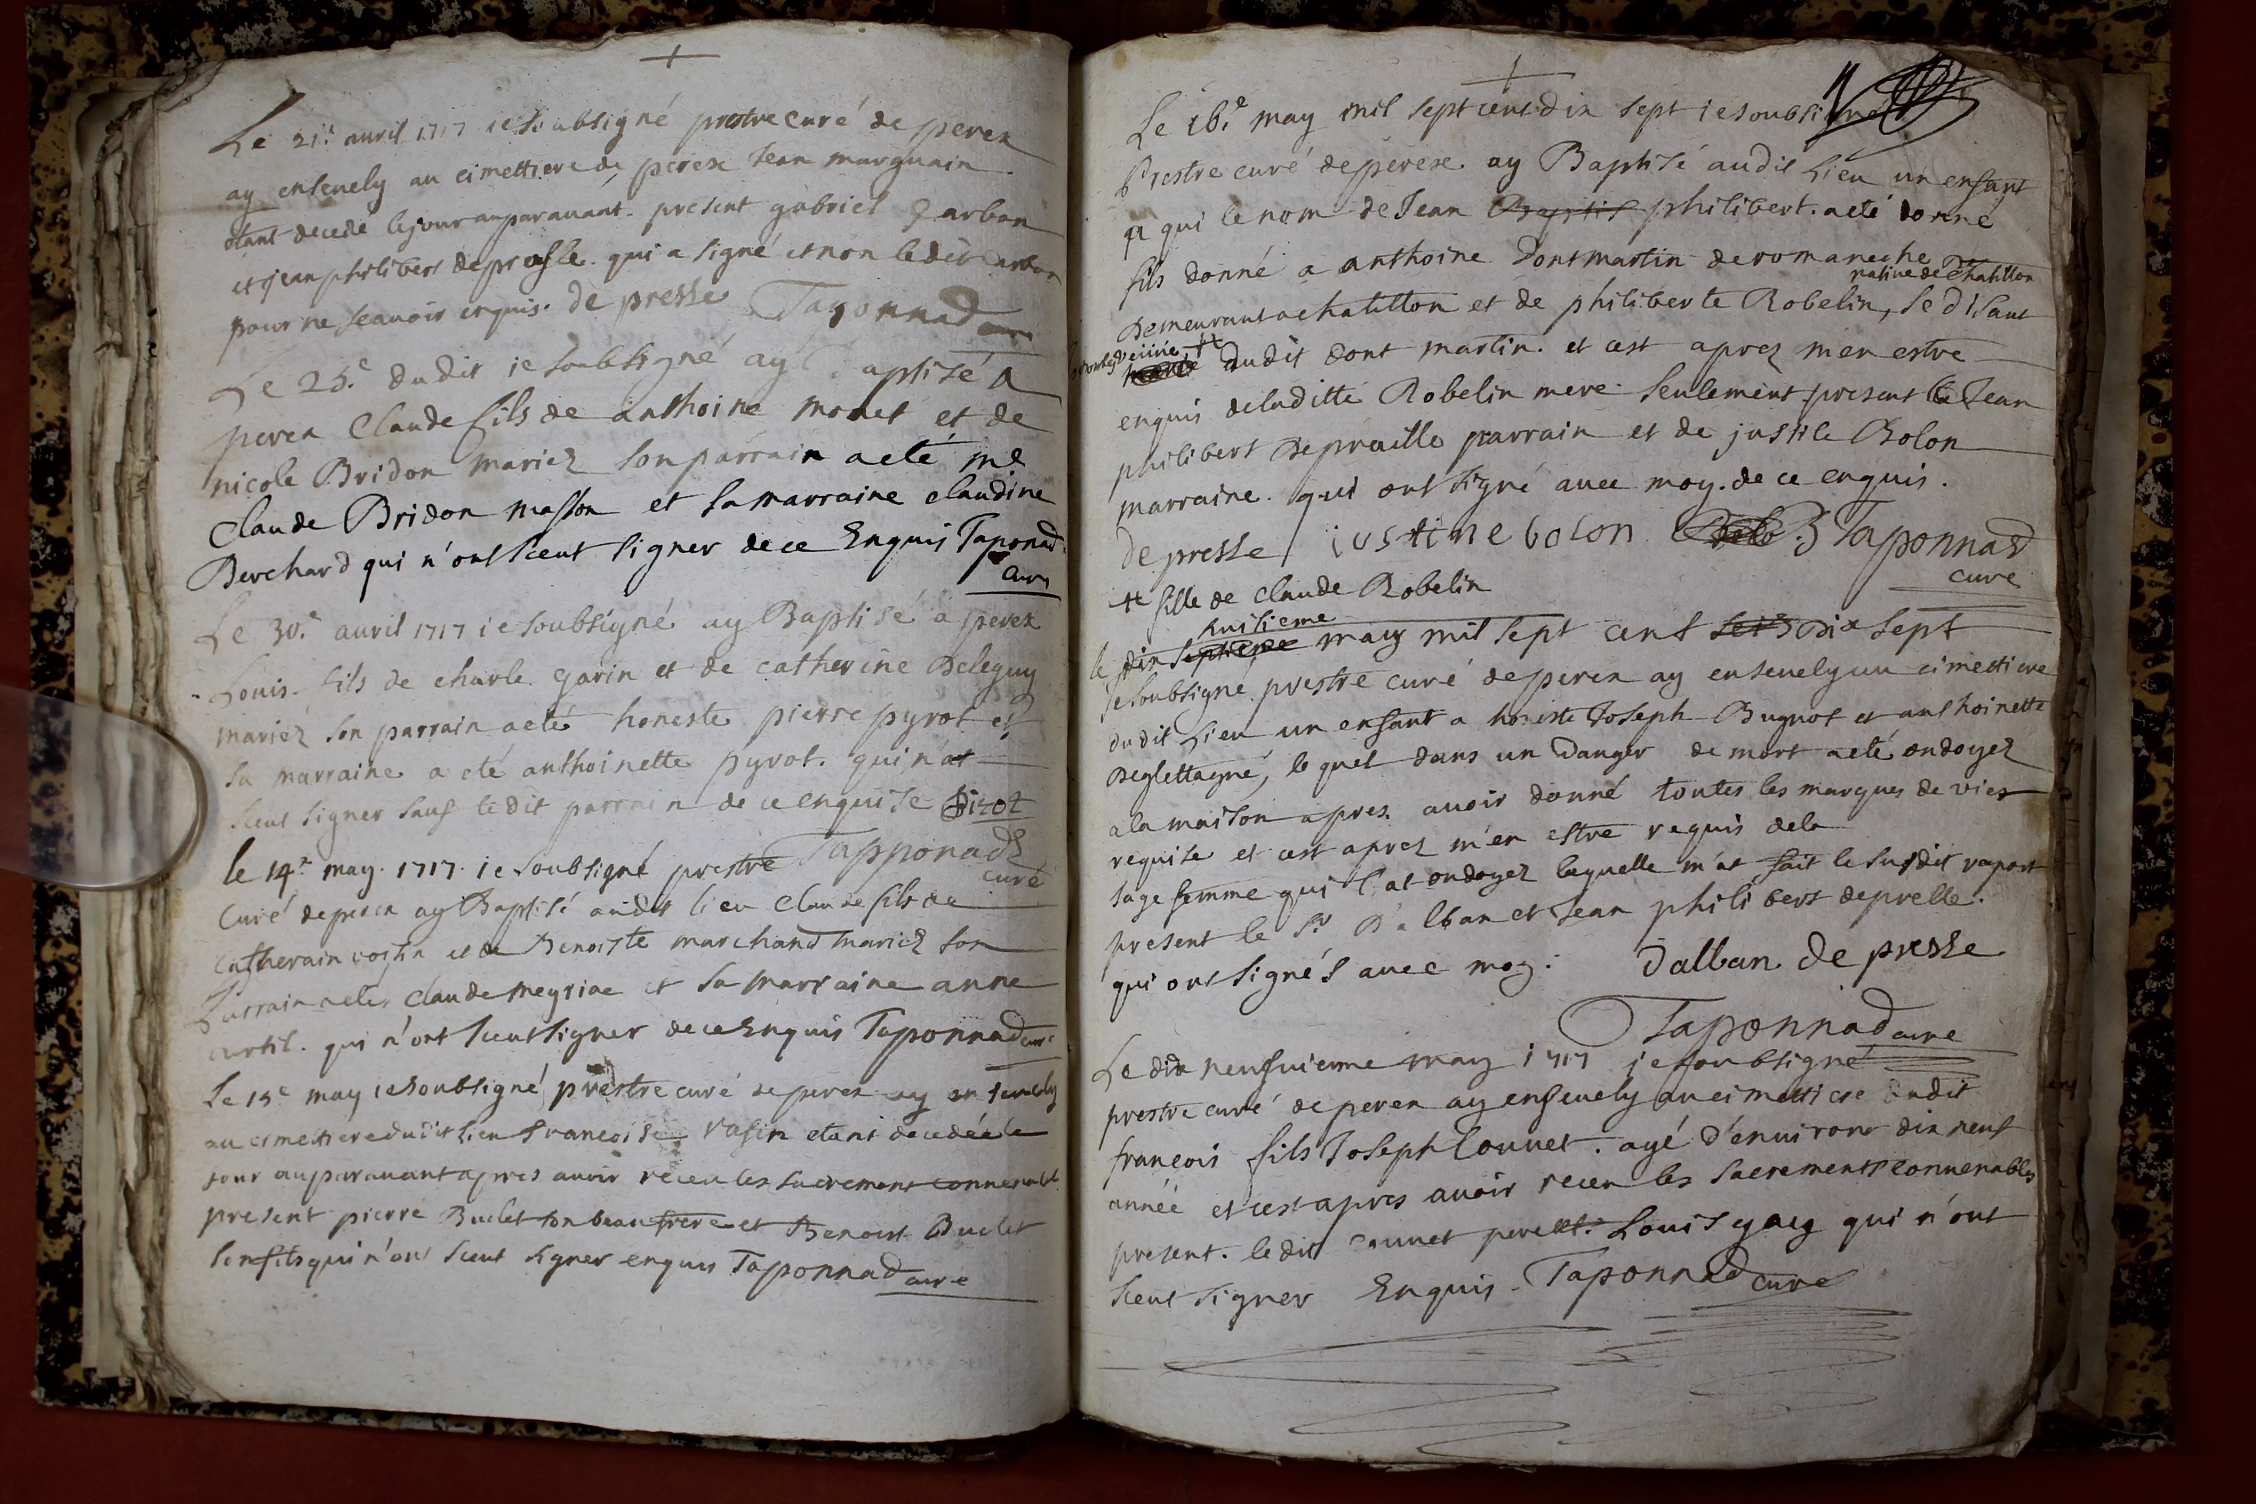 Le 21.e auril 1717 ie soubsigné prestre curé de perex
ay enseuely au cimettiere de perex Jean marguain
étant decedé le jour auparauant. present gabriel Carban
et jean philibert deprasle. qui a signé et non le dit Carban
pour ne scauoir enquis. de presle Taponnad curé
Le 25.e dudit ie soubsigné ay baptisé a
perex Claude fils de anthoine monet et de
nicole Bridon mariez son parrain a eté me
Claude Bridon masson et sa marraine claudine
Berchard qui n'ont sceut signer de ce Enquis Taponad
curé
Le 30.e auril 1717 ie soubsigné ay Baptisé a perex
Louis fils de charle garin et de catherine Deleguy
mariez son parrain a eté honeste pierre pyrot et
sa marraine a eté anthoinette pyrot. qui n'at
sceut signer sauf le dit parrain de ce enquise Pirot
Tapponadz
curé
le 14.e may. 1717. ie soubsigné prestre
curé de perex ay Baptisé audit lieu Claude fils de
Catherain et de Benoiste marchand mariez son
parrain a eté claude meyriae et sa marraine anne
curtil. qui n'ont sceut signer de ce Enquis Taponnad curé
Le 15e may ie soubsigné prestre curé de perex ay enseuely
au cimettiere dudit lieu francoise rasin etant decedée le
jour auparauant apres auoir receu les sacrement conuenabl
present pierre Buclet son beau frere et Benoist Buclet
son fils qui n'ont sceut signer enquis Taponnad curé
Le 16.e may mil sept cent dix sept ie soubsigné
Prestre curé de perex ay Baptisé audit Lieu un enfant
a qui le nom de Jean Baptis philibert. a eté donné
fils donné a anthoine Dont martin de romaneche
natiue de Chatillon
Demeurant a chatillon et de philiberte Robelin, se disant
veüue dudit dont martin. et cest aprez m'en estre
enquis de laditte Robelin mere seulement present Jean
philibert Depraille parrain et de justile Bolon
marraine. qui ont signé auec moy. de ce enquis.
de presle justine bolon Taponnad
curé
# fille de claude Robelin
huitieme
le dix septieme may mil sept cent seis dix sept
ie soubsigné prestre curé de perex ay enseuely au cimettiere
dudit Lieu un enfant a honeste Joseph Bugnot et anthoinette
Deglettagné, lequel dans un danger de mort a eté ondoyez
a la maison apres. auoir donné toutes les marques de vies
requise et cest aprez m'en estre requis dela
sage femme qui l'at ondoyez laquelle m'at fait le susdit raport
present le Sr D'alban et Jean philibert deprelle.
qui ont signés auec moy. Dalban de presle
Taponnad curé
Le dix neufuieme may 1717 ie soubsigné
prestre curé de perex ay enseuely au cimettiere dudit
francois fils Joseph Couuet. agé d'enuiront dix neuf
année et cest apres auoir receu les sacrements conuenables
present. le dit Couuet pere et. Louis gacg qui n'ont
sceut signer Enquis. Taponnad curé